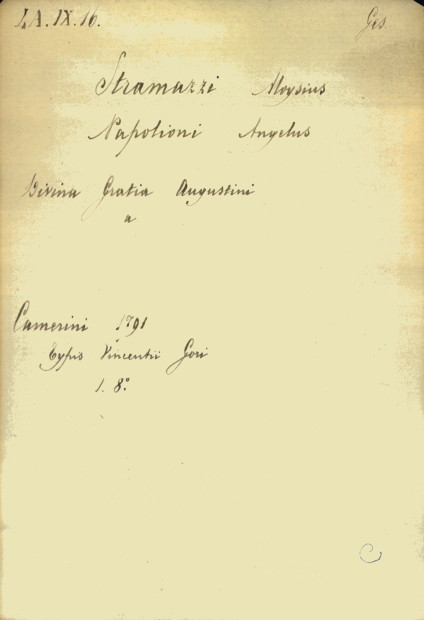 LA. IX. 16. Gis.
Stramazzi Aloysius
Napolioni Angelus
Divina Gratia Augustini
a
Camerini 1791
Typis Vincentii Gori
1. 8°
C